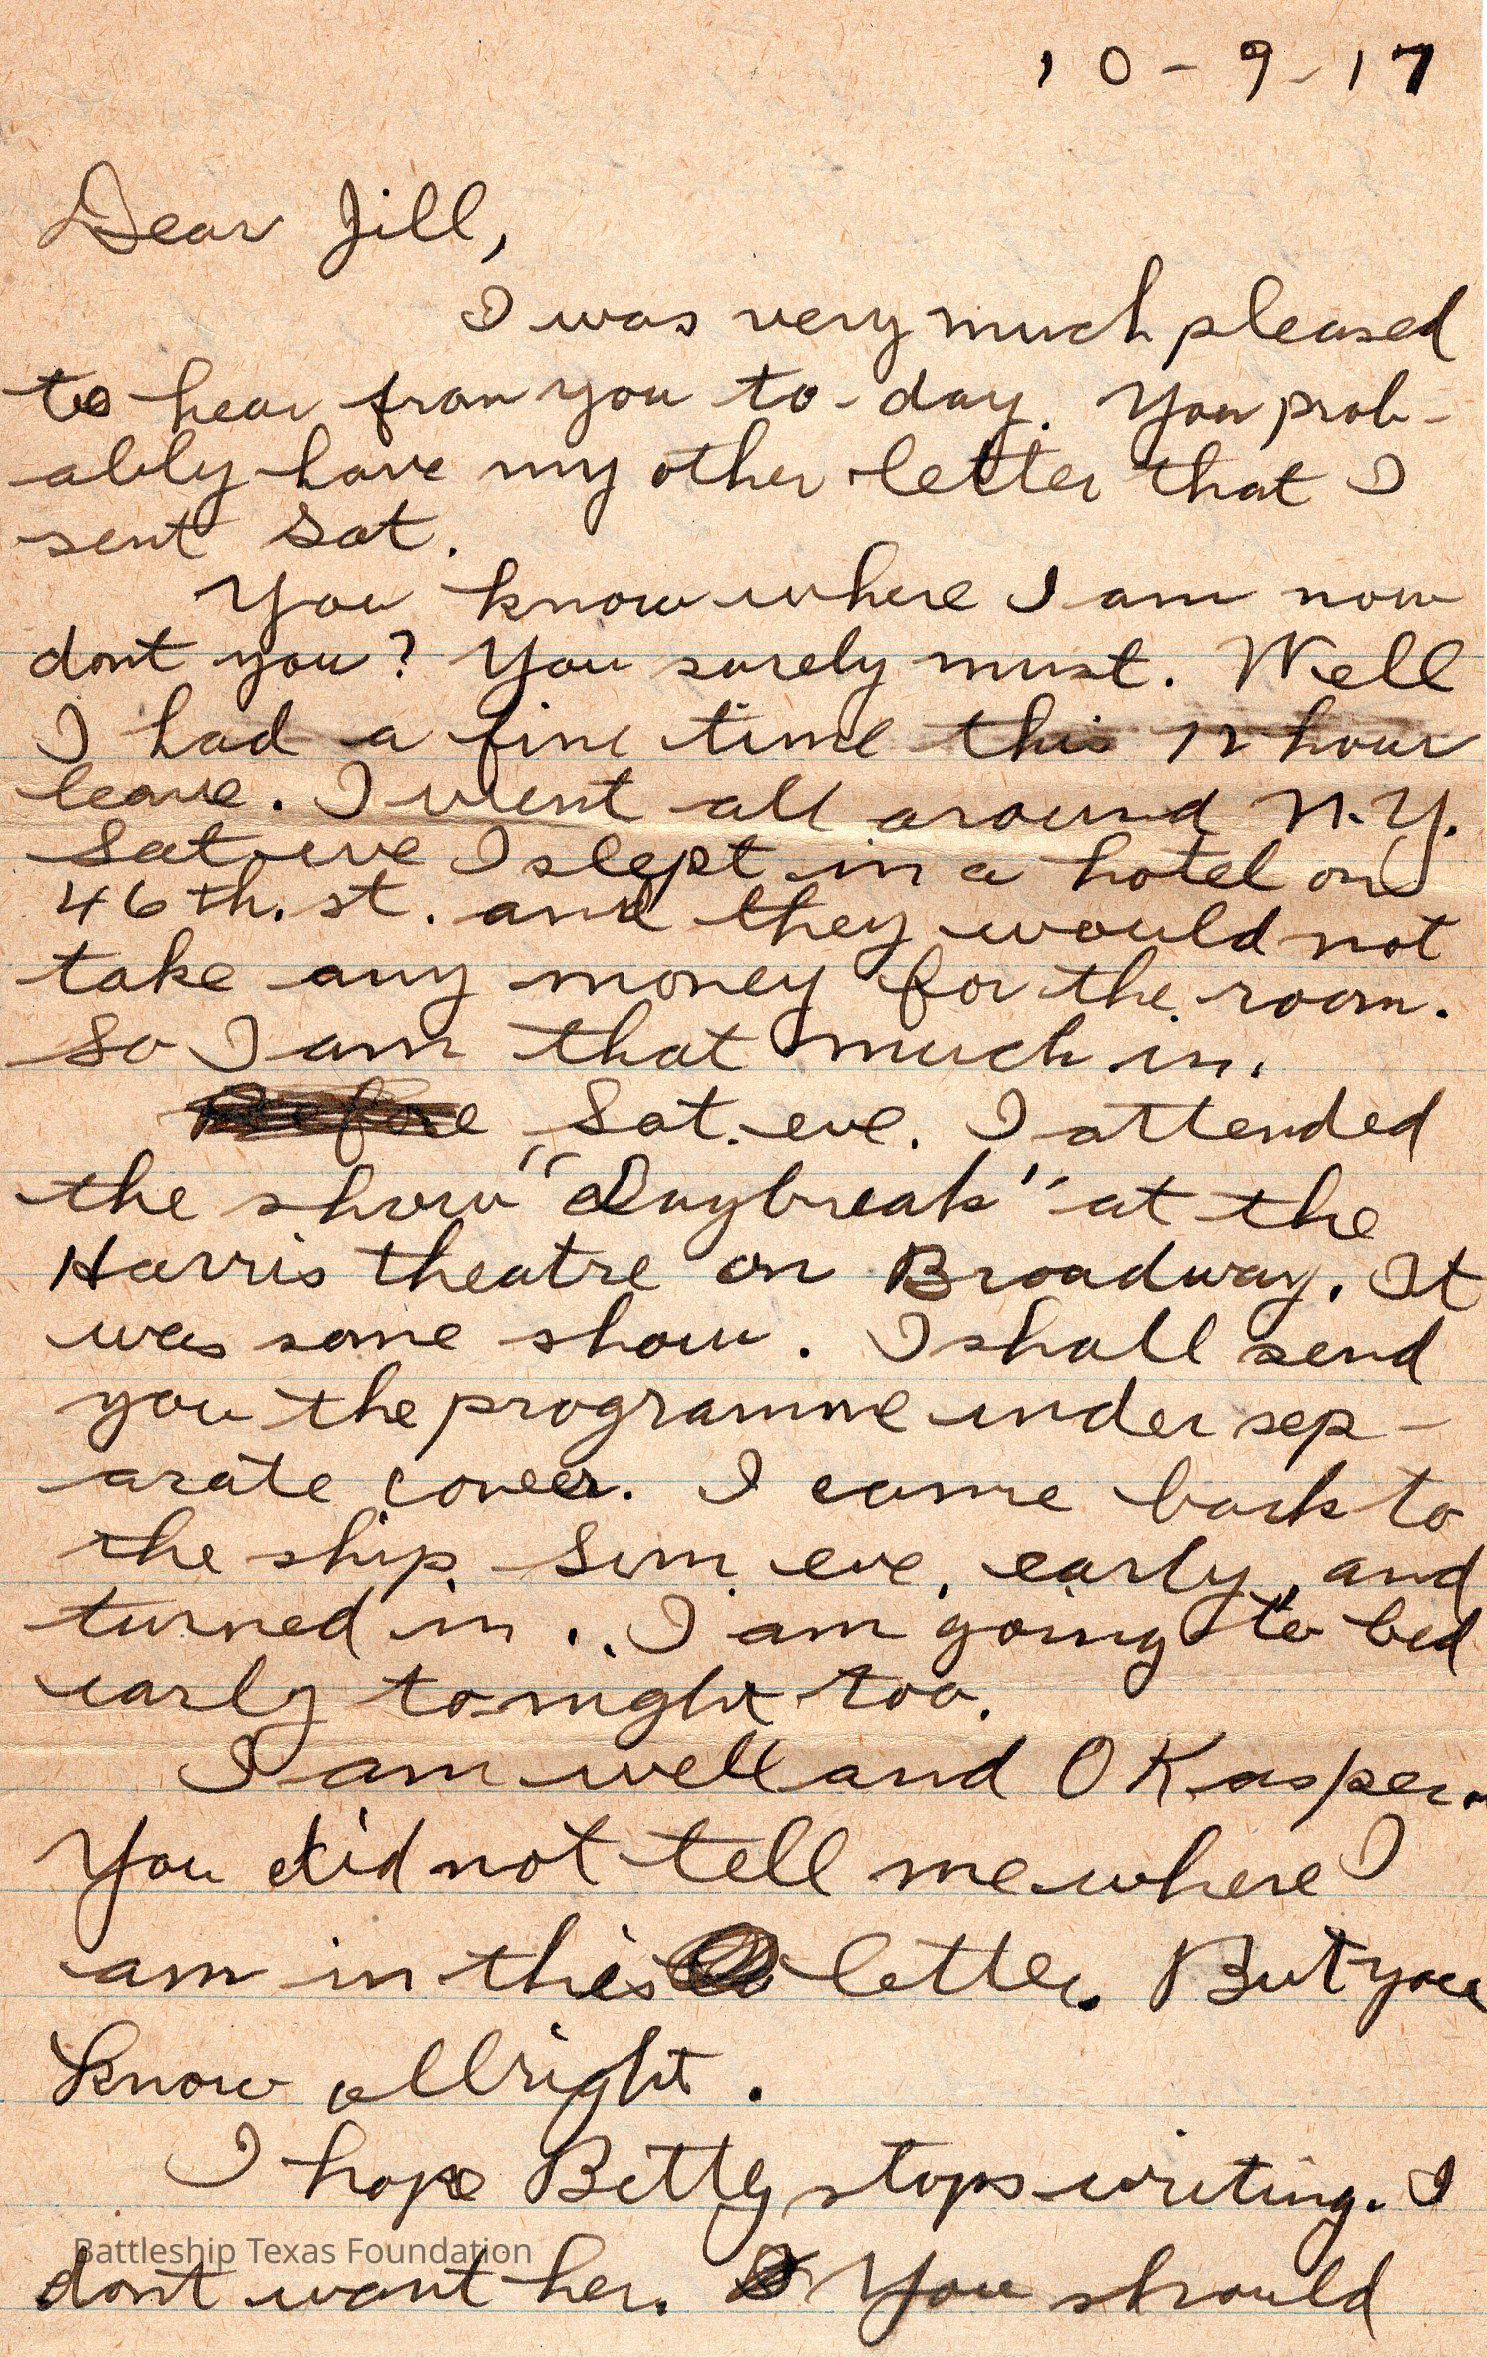 10-9-17
Dear Jill,
I was very much pleased
to hear from you to-day. You prob-
ably have my other letter that I
sent Sat.
You know where I am now
dont you? You surely must. Well
I had a fine time this 12 hour
leave. I went all around N.Y.
Sat. eve I slept in a hotel on
46th. st. and they would not
take any money for the room.
So I am that much in.
Before Sat. eve. I attended
the show "Daybreak" at the
Harris theatre on Broadway. It
was some show. I shall send
you the programme under sep-
arate cover. I came back to
the ship. Sun. eve. early, and
turned in. I am going to bed
early to-night too.
I am well and OK as per.
You did not tell me where I
am in this letter. But you
know allright.
I hope Betty stops writing. I
Battleship Texas Foundation
dont want her. You should